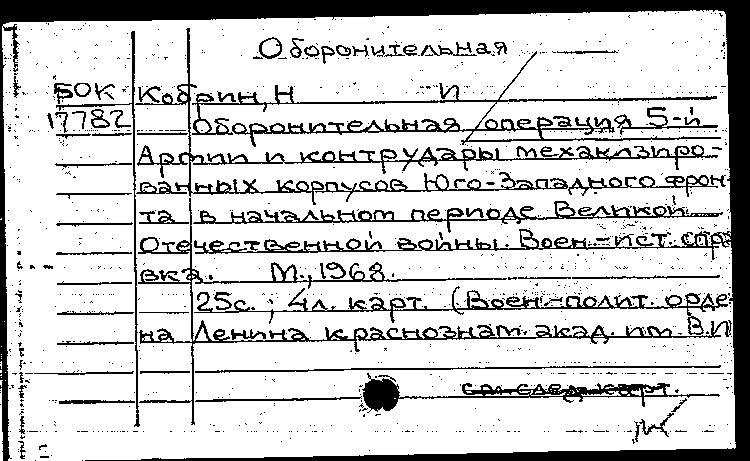 Оборонительная
БОК Кобрин, Н И
17782 Оборонительная операция 5-й
Армии и контрудары механизиро-
ванных корпусов Юго-Западного фрон-
та в начальном периоде Великой
Отечественной войны. Воен.-ист. спра
вка. М., 1968.
25с.; 4л. карт. (Воен.-полит. орде-
на Ленина краснознам. акад. им. В.И
см. след. карт.